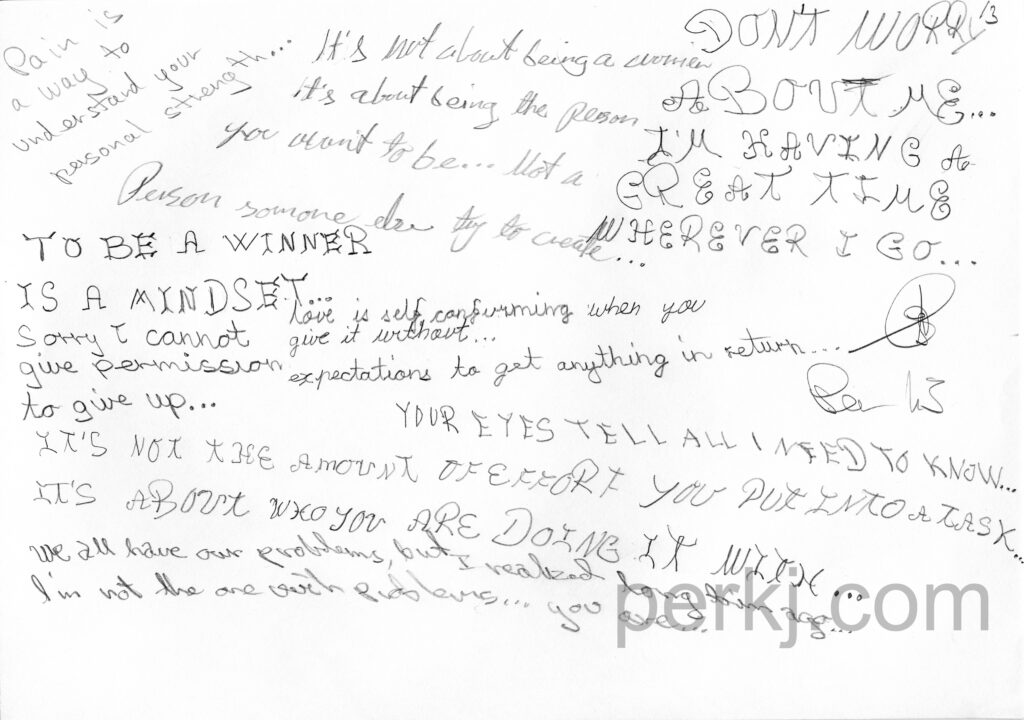 Pain is
a way to
understand your
personal strength...
It's not about being a women
It's about being the person
you want to be... Not a
Person somone else try to create...
DON'T WORRY
ABOUT ME...
I'M HAVING A
GREAT TIME
WHEREVER I GO...
13
TO BE A WINNER
IS A MINDSET...
Sorry I cannot
give permission
to give up...
Love is self confurming when you
give it without...
expectations to get anything in return...
Per 13
YOUR EYES TELL ALL I NEED TO KNOW...
IT'S NOT THE AMOUNT OF EFFORT YOU PUT INTO A TASK...
IT'S ABOUT WHO YOU ARE DOING IT WITH...
We all have our problems, but I realized long time ago...
I'm not the one with problems... you are...
perkj.com